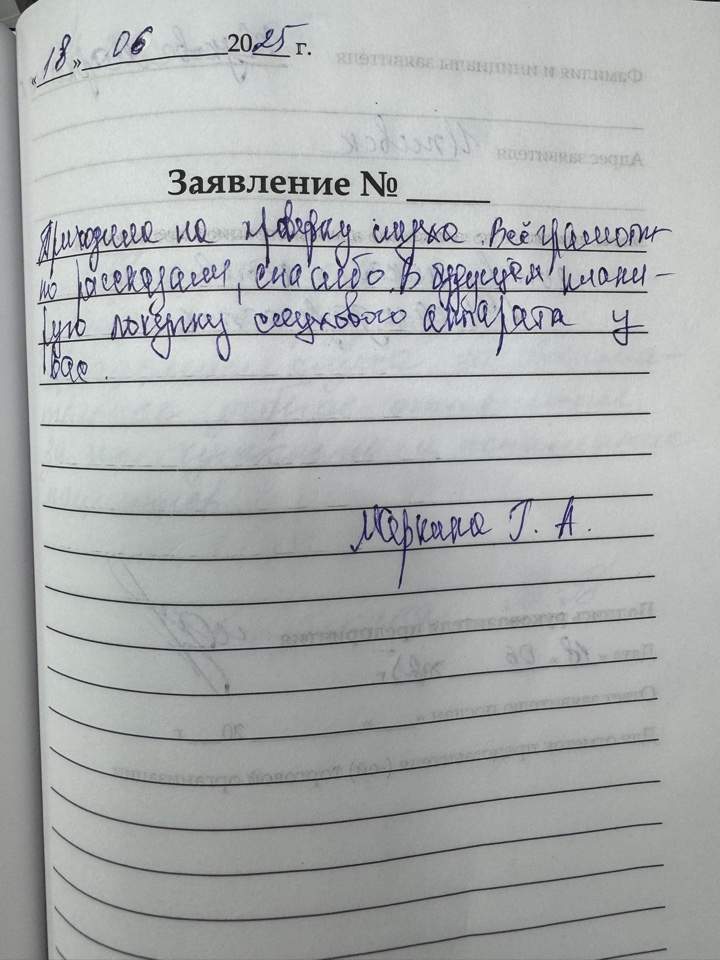 «18» 06 2025 г.
Заявление № ____
Приходила на проверку слуха. Всё грамотн-
но рассказали, спасибо. В будущем плани-
рую покупку слухового аппарата у
вас.
Маркина Г. А.